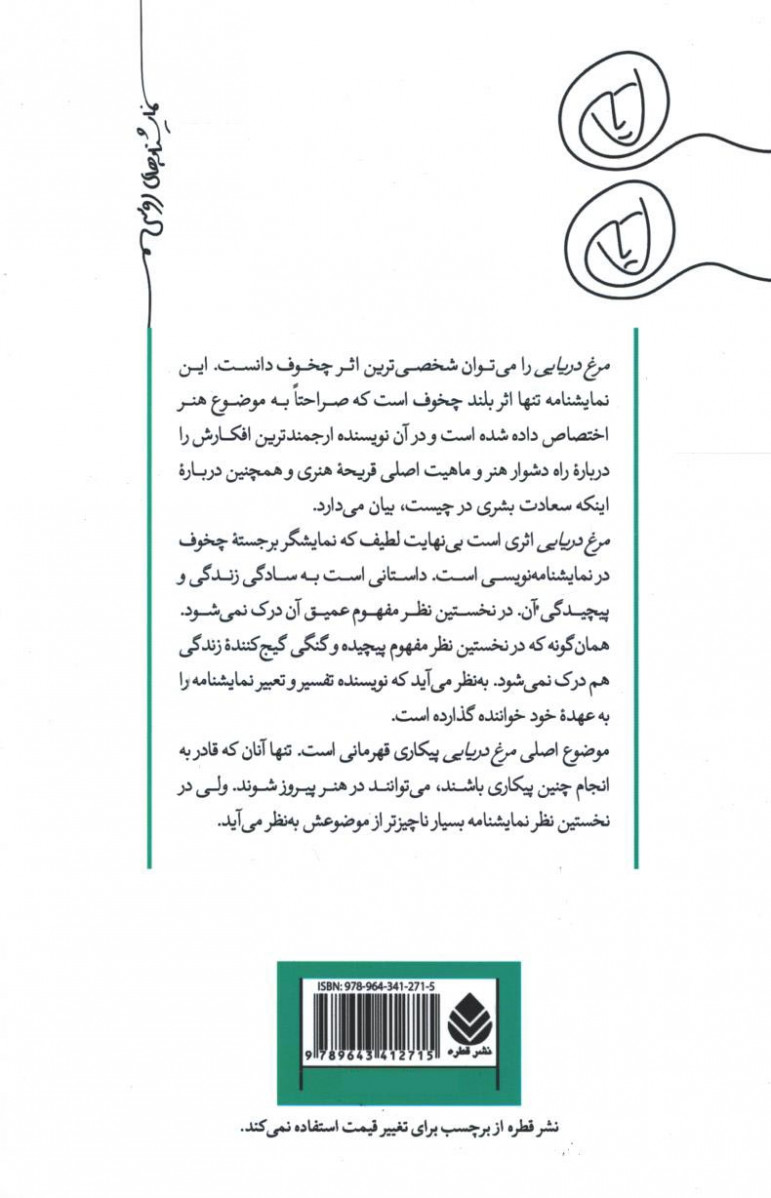 نمایشنامه‌های روسی
مرغ دریایی را می‌توان شخصی‌ترین اثر چخوف دانست. این
نمایشنامه تنها اثر بلند چخوف است که صراحتاً به موضوع هنر
اختصاص داده شده است و در آن نویسنده ارجمندترین افکارش را
دربارهٔ راه دشوار هنر و ماهیت اصلی قریحهٔ هنری و همچنین دربارهٔ
اینکه سعادت بشری در چیست، بیان می‌دارد.
مرغ دریایی اثری است بی‌نهایت لطیف که نمایشگر برجستهٔ چخوف
در نمایشنامه‌نویسی است. داستانی است به سادگی زندگی و
پیچیدگی آن. در نخستین نظر مفهوم عمیق آن درک نمی‌شود.
همان‌گونه که در نخستین نظر مفهوم پیچیده و گنگی گیج‌کنندهٔ زندگی
هم درک نمی‌شود. به‌نظر می‌آید که نویسنده تفسیر و تعبیر نمایشنامه را
به عهدهٔ خود خواننده گذارده است.
موضوع اصلی مرغ دریایی پیکاری قهرمانی است. تنها آنان که قادر به
انجام چنین پیکاری باشند، می‌توانند در هنر پیروز شوند. ولی در
نخستین نظر نمایشنامه بسیار ناچیزتر از موضوعش به‌نظر می‌آید.
ISBN: 978-964-341-271-5
9 789643 412715
نشر قطره
نشر قطره از برچسب برای تغییر قیمت استفاده نمی‌کند.